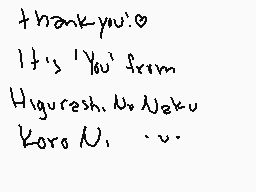 thank you! ♡
It's 'You' from
Higurashi No Naku
Koro Ni ·u·